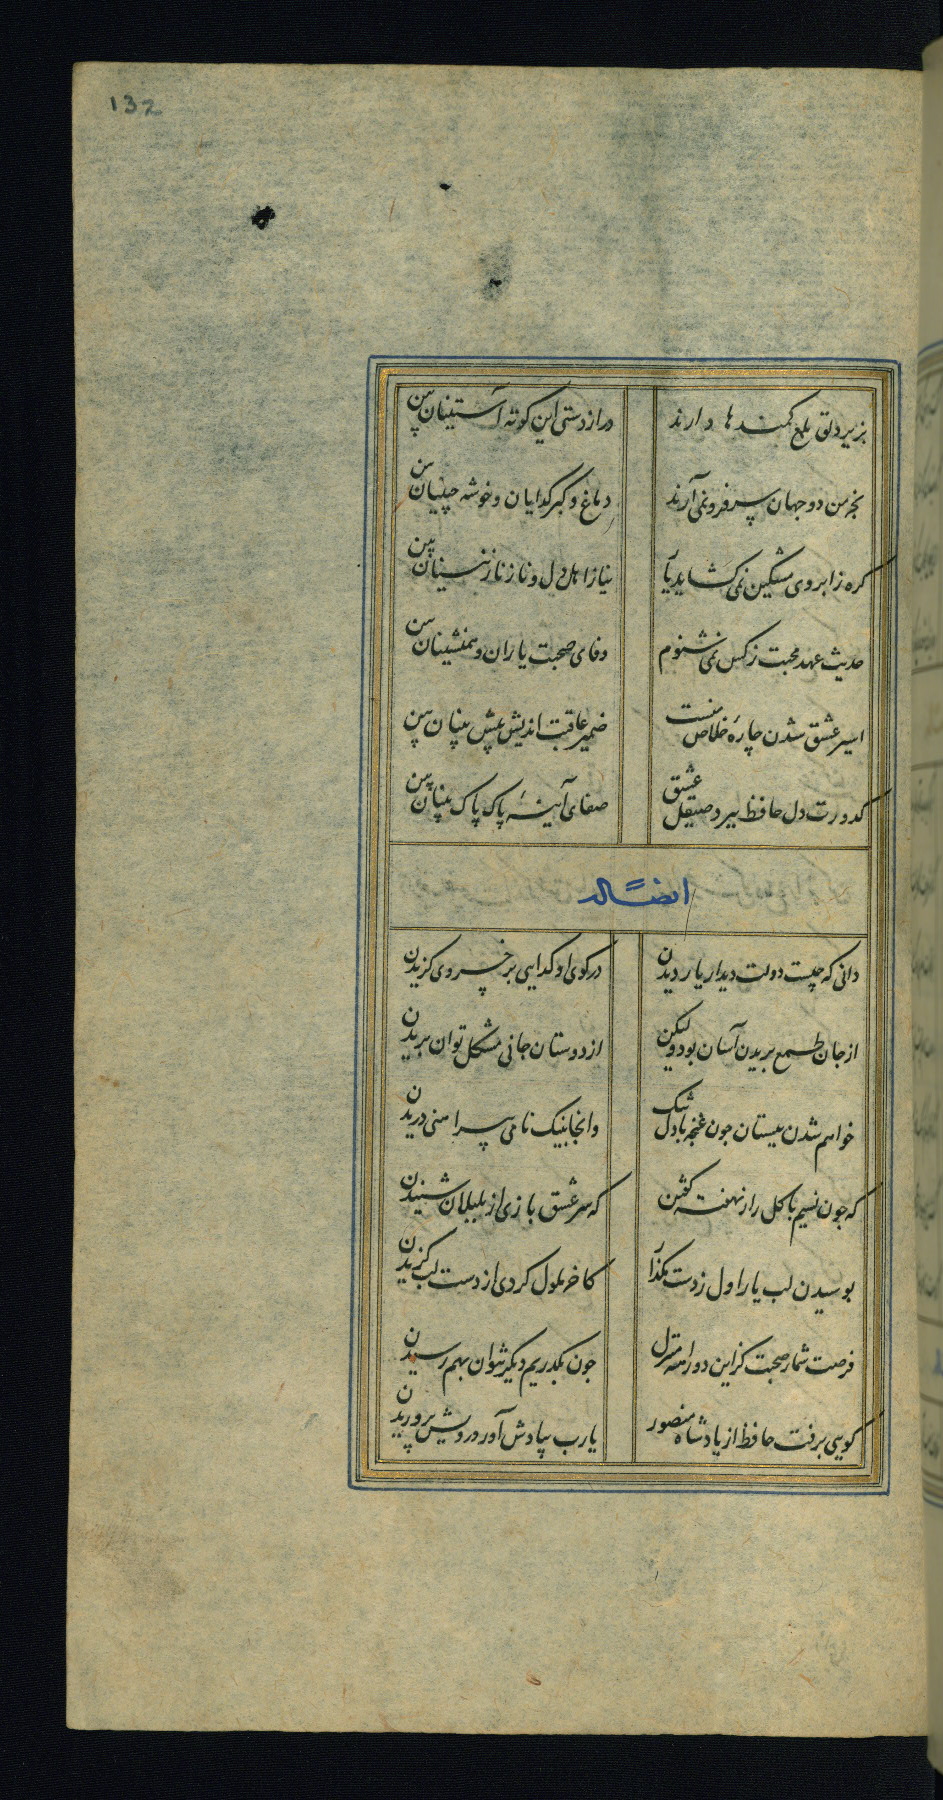 132
بزیر دلق ملمع کمندها دارند
درازدستی این کوته آستینان بین
بخرمن دو جهان سر فرو نمی آرند
دماغ و کبر کدایان و خوشه چینان بین
کره ز ابروی مشکین نمی کشاید یار
نیاز اهل دل و ناز نازنینان بین
حدیث عهد محبت ز کس نمی شنوم
وفای صحبت یاران و همنشینان بین
اسیر عشق شدن چاره خلاص منست
ضمیر عاقبت اندیش پیش بینان بین
کدورت دل حافظ ببرد صیقل عشق
صفای آینه پاک پاک بینان بین
ایضاً له
دانی که چیست دولت دیدار یار دیدن
در کوی او کدایی بر خسروی کزیدن
از جان طمع بریدن آسان بود ولیکن
از دوستان جانی مشکل توان بریدن
خواهم شدن ببستان چون غنچه با دل تنک
وانجا بنیک نامی پیراهنی دریدن
که چون نسیم با کل راز نهفته کفتن
که سر عشق بازی از بلبلان شنیدن
بوسیدن لب یار اول ز دست مکذار
کاخر ملول کردی از دست و لب کزیدن
فرصت شمار صحبت کز این دوراهه منزل
چون بکذریم دیکر نتوان بهم رسیدن
کویی برفت حافظ از یاد شاه منصور
یارب بیادش آور درویش پروریدن